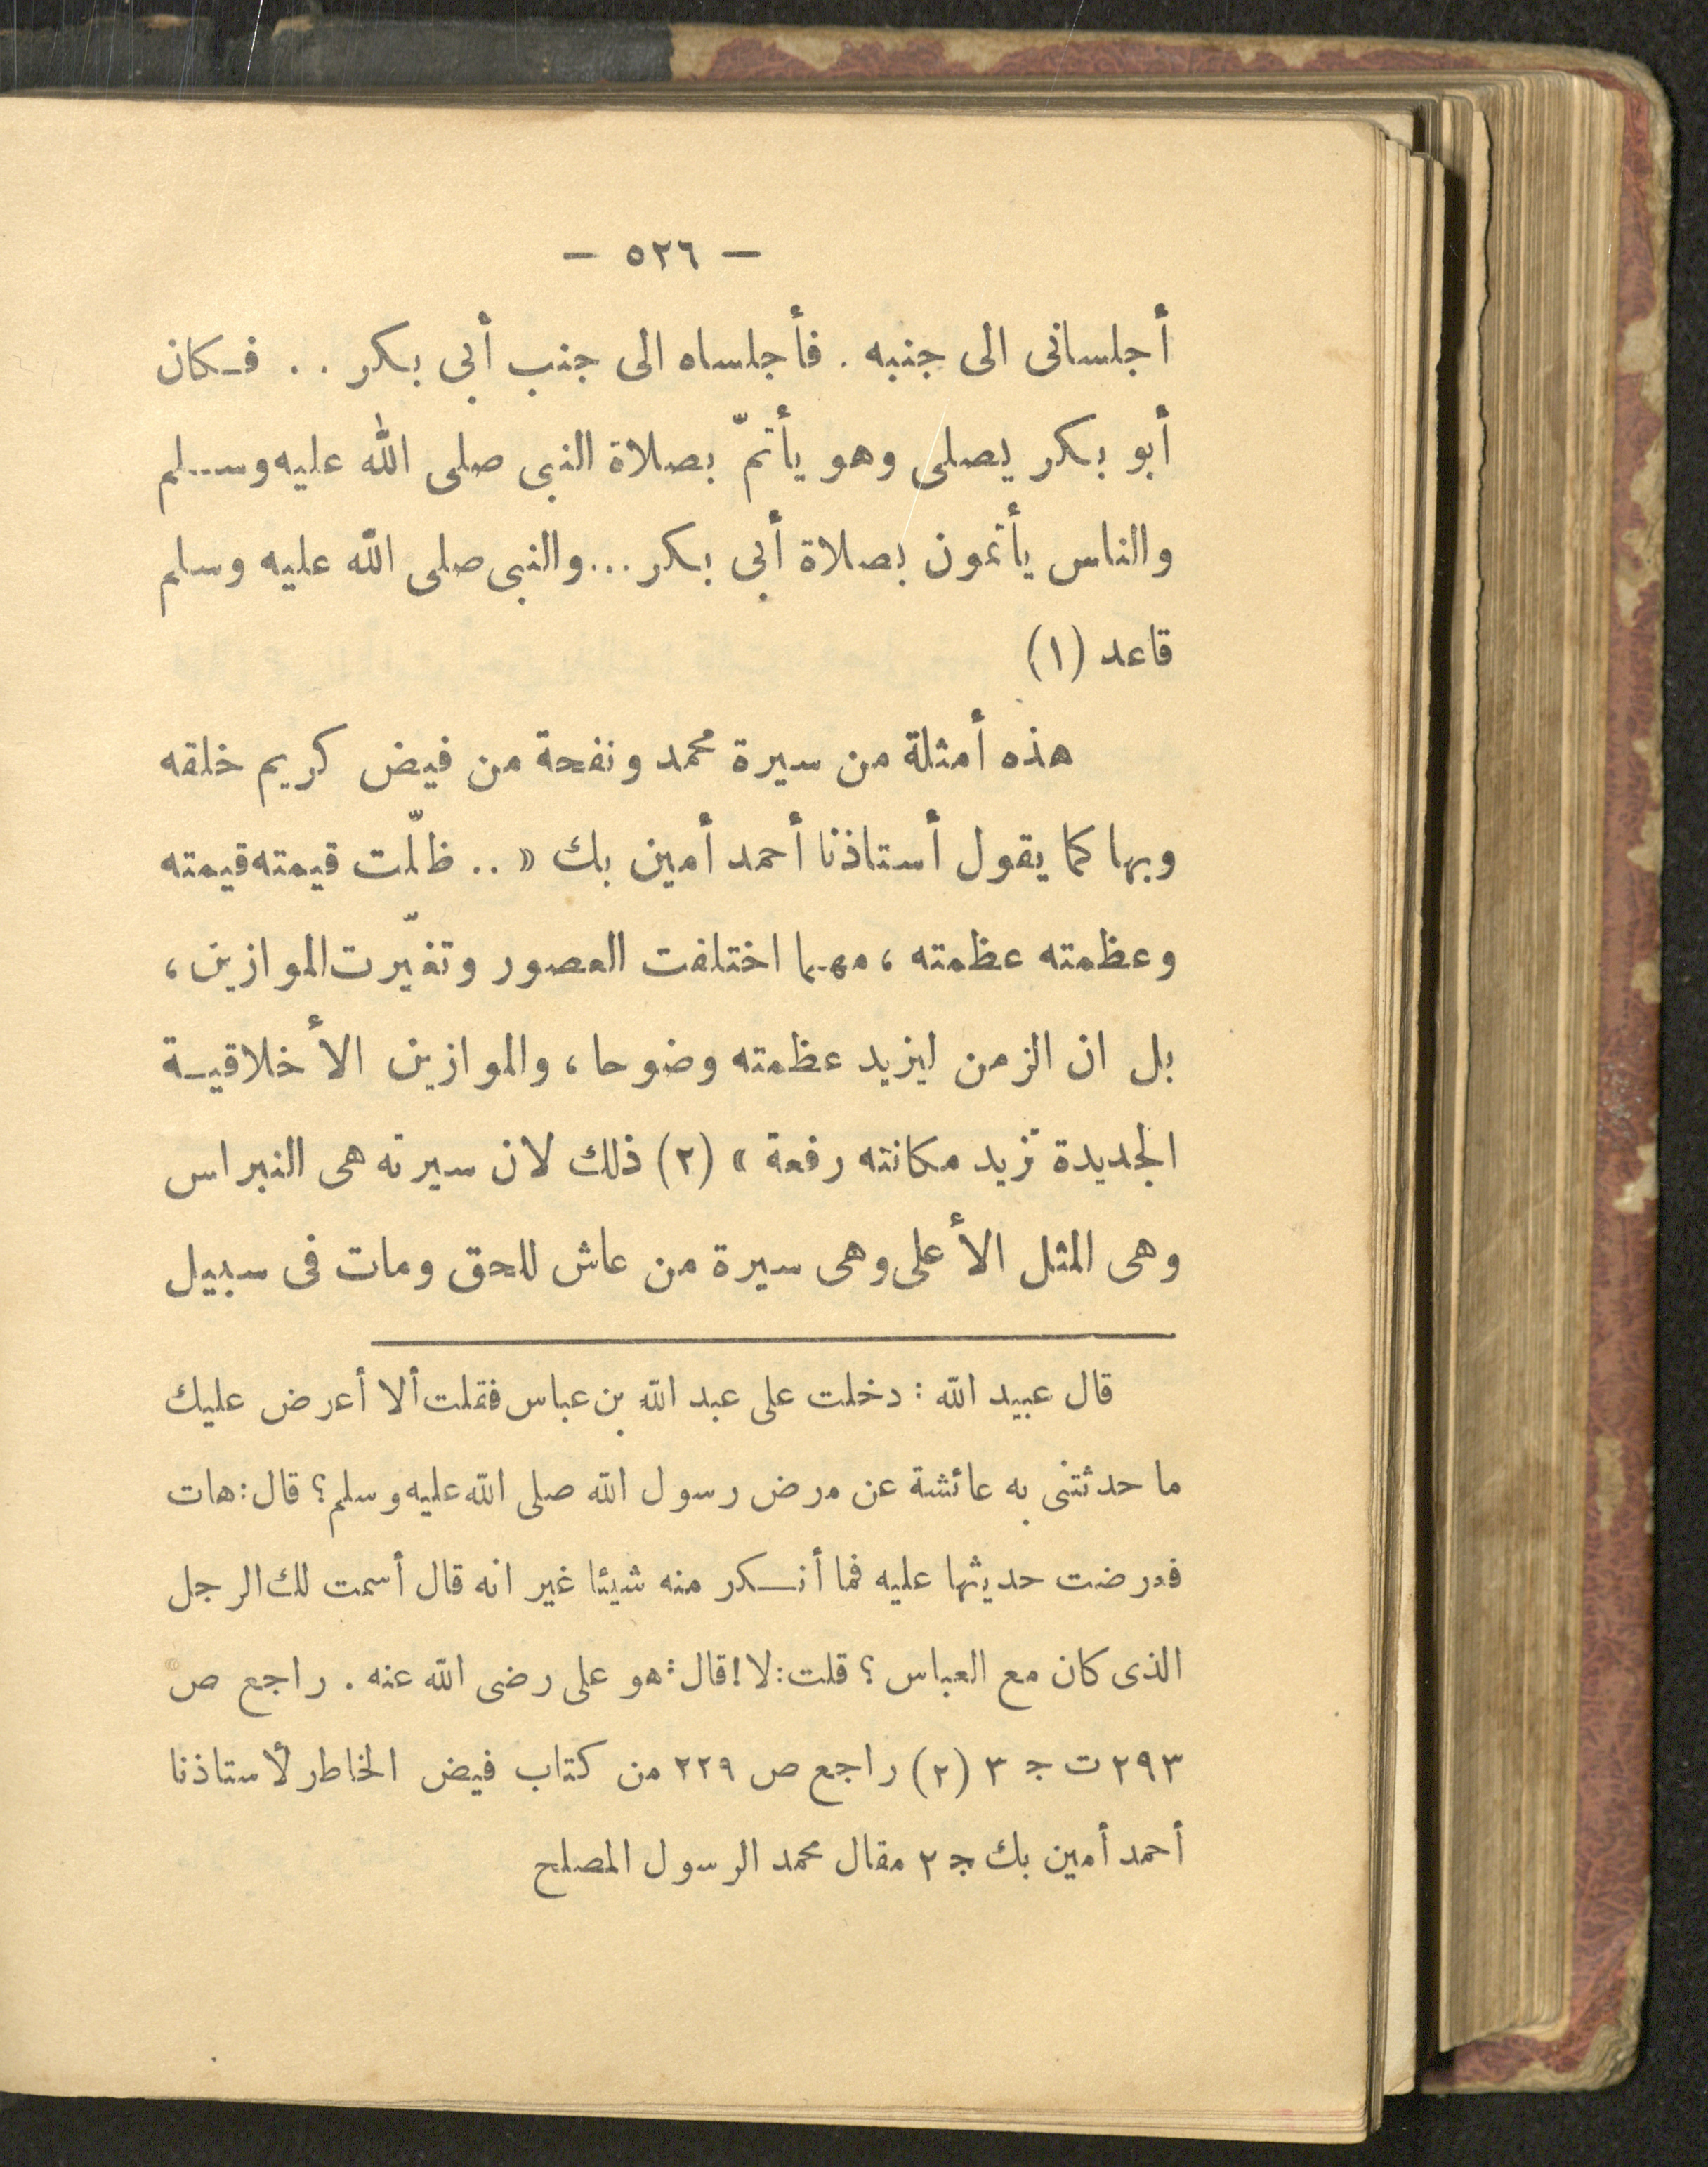 — ٥٢٦ —
أجلسانى الى جنبه . فأجلساه الى جنب أبى بكر . . فكان
أبو بكر يصلى وهو يأتمّ بصلاة النبى صلى الله عليه وسلم
والناس يأتمون بصلاة أبى بكر ... والنبى صلى الله عليه وسلم
قاعد (١)
هذه أمثلة من سيرة محمد ونفحة من فيض كريم خلقه
وبها كما يقول أستاذنا أحمد أمين بك « .. ظلّت قيمته قيمته
وعظمته عظمته ، مهما اختلفت العصور وتغيّرت الموازين ،
بل ان الزمن ليزيد عظمته وضوحا ، والموازين الأخلاقية
الجديدة تزيد مكانته رفعة » (٢) ذلك لان سيرته هى النبراس
وهى المثل الأعلى وهى سيرة من عاش للحق ومات فى سبيل
قال عبيد الله : دخلت على عبد الله بن عباس فقلت ألا أعرض عليك
ما حدثتنى به عائشة عن مرض رسول الله صلى الله عليه وسلم ؟ قال : هات
فعرضت حديثها عليه فما أنكر منه شيئا غير انه قال أسمت لك الرجل
الذى كان مع العباس ؟ قلت : لا ! قال : هو على رضى الله عنه . راجع ص
٢٩٣ ت ج ٣ (٢) راجع ص ٢٢٩ من كتاب فيض الخاطر لأستاذنا
أحمد أمين بك ج ٢ مقال محمد الرسول المصلح